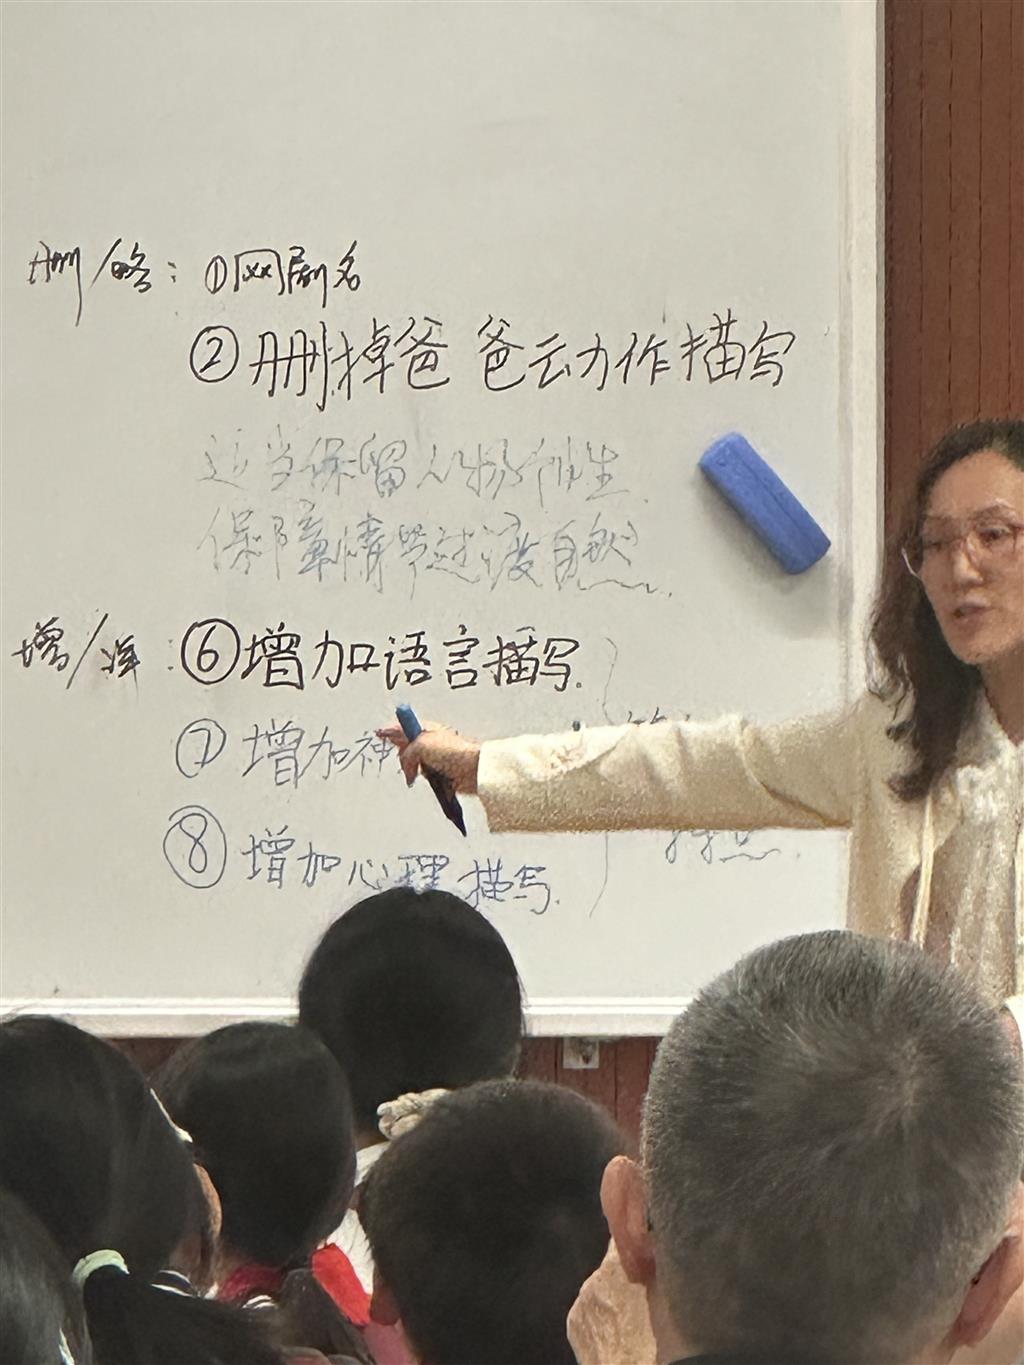 删/略：①网剧名
②删掉爸爸动作描写
适当保留人物个性
保障情节过渡自然
增/详：⑥增加语言描写.
⑦增加神
⑧增加心理描写.